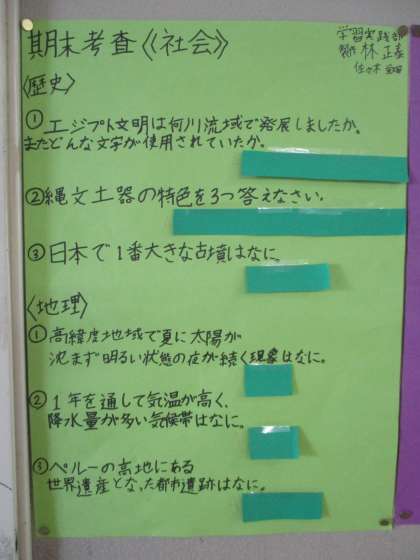 期末考査《社会》
学習実践部
製作 林 正
佐々木
〈歴史〉
①エジプト文明は何川流域で発展しましたか。
またどんな文字が使用されていたか。
②縄文土器の特色を3つ答えなさい。
③日本で1番大きな古墳はなに。
〈地理〉
①高緯度地域で夏に太陽が
沈まず明るい状態の夜が続く現象はなに。
②1年を通して気温が高く、
降水量が多い気候帯はなに。
③ペルーの高地にある
世界遺産となった都市遺跡はなに。